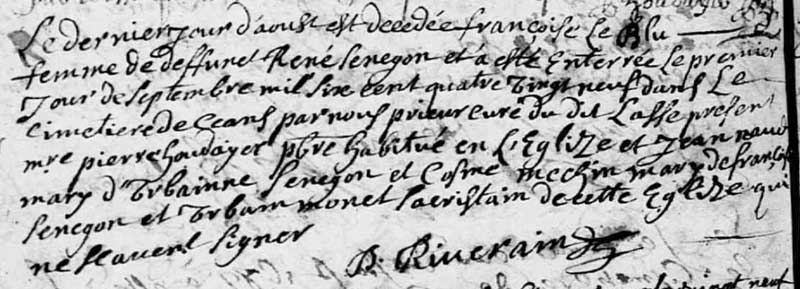 Le dernier jour d'aoust est decedée francoise Le Blu
femme de deffunct René Senegon et a esté Enterrée Le premier
Jour de septembre mil six cent quatre vingt neuf dans Le
cimetiere de ceans par nous prieur curé du dit Lasse present
mre pierre houdayer pbre habitué en L'Eglize et Jean naud
mary d'Urbainne Senegon et Cosme mechin mary de francoise
Senegon et Urbain monet sacristain de cette Eglize qui
ne scavent signer
B. Riverain